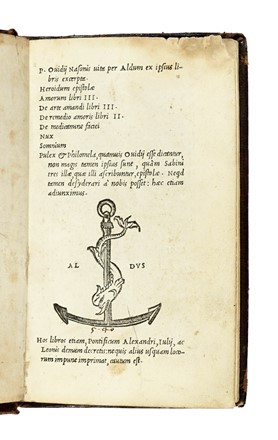 P. Ouidij Nasonis uita per Aldum ex ipsius li-
bris excerpta.
Heroidum epistolæ
Amorum libri III.
De arte amandi libri III.
De remedio amoris libri II.
De medicamine faciei
Nux
Somnium
Pulex & Philomela, quamuis Ouidij esse dicantur,
non magis tamen ipsius sunt, quàm Sabini
tres illæ, quæ illi ascribuntur, epistolæ. Neqd
tamen desyderari à nobis posset: hæc etiam
adiunximus.
AL DVS
Hos libros etiam, Pontificum Alexandri, Iulij, ac
Leonis demum decretu: nequis alius usquam loco-
rum impune imprimat, cautum est.